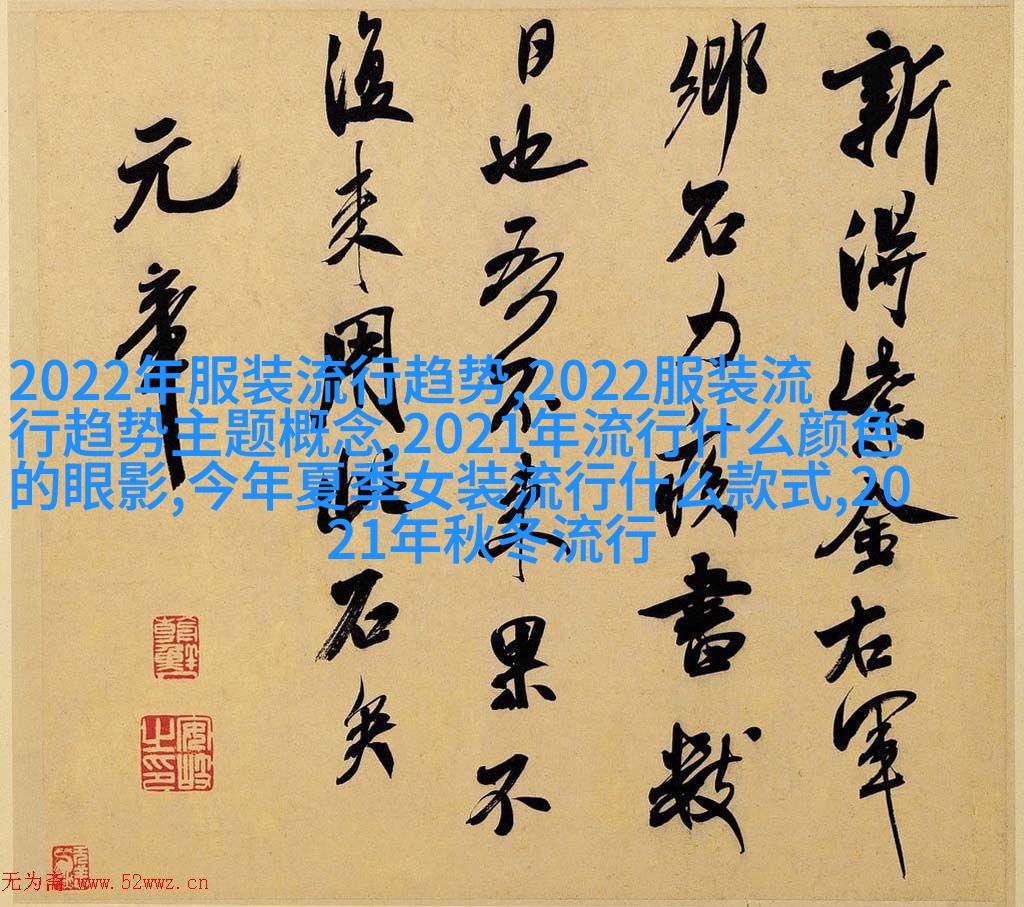 新得紫金右軍
鄉石力疾書數
日也吾不來果不
復來用此石矣
元章
2022年服装流行趋势,2022服装流
行趋势主题概念,2021年流行什么颜色
的眼影,今年夏季女装流行什么款式,20
21年秋冬流行
安岐
之印
无为斋 www.52wwz.cn